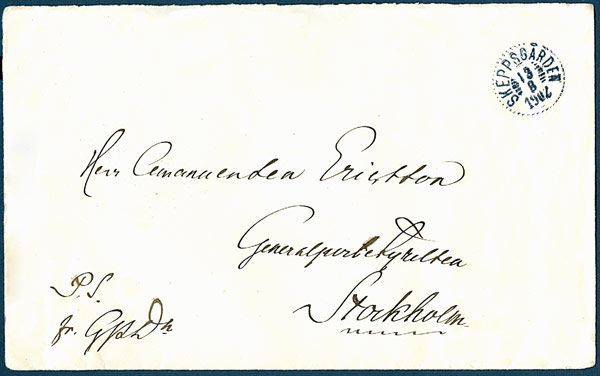 SKEPPSGÅRDEN
13
8
1902
Herr Amanuensen Erichson
Generalpoststyrelsen
Stockholm
P.S.
fr.